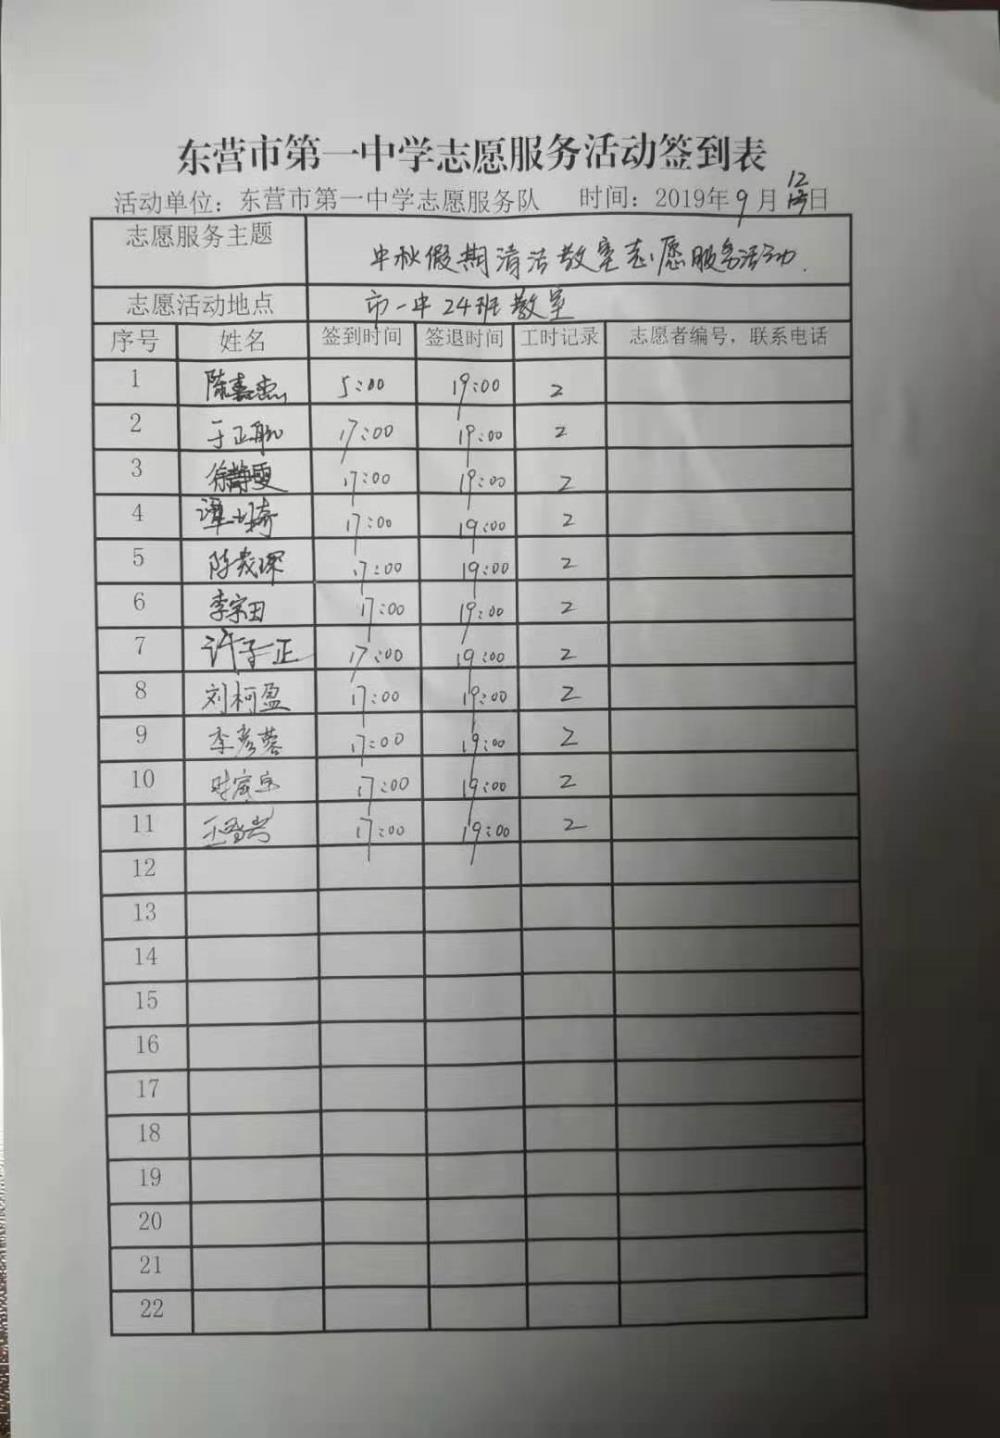 东营市第一中学志愿服务活动签到表
活动单位：东营市第一中学志愿服务队 时间：2019年9月12日
志愿服务主题 中秋假期清洁教室志愿服务活动.
志愿活动地点 市一中24班教室
序号 姓名 签到时间 签退时间 工时记录 志愿者编号，联系电话
1 5:00 19:00 2
2 于正聪 17:00 19:00 2
3 徐静雯 17:00 19:00 2
4 17:00 19:00 2
5 17:00 19:00 2
6 李宗田 17:00 19:00 2
7 许子正 17:00 19:00 2
8 刘柯盈 17:00 19:00 2
9 李彦蓉 17:00 19:00 2
10 17:00 19:00 2
11 17:00 19:00 2
12
13
14
15
16
17
18
19
20
21
22